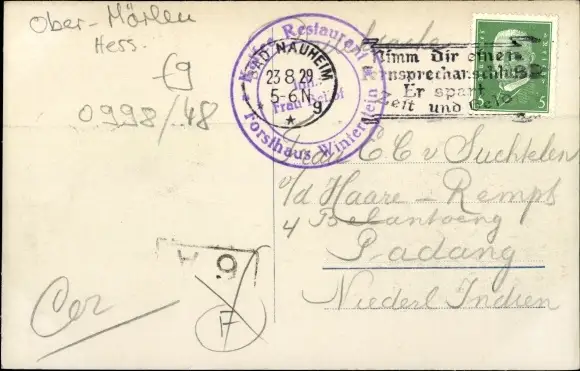 Ober-Mörlen
Hess.
£9
0998/48
Kaffee Restaurant
Forsthaus Winterstein
Inh.:
Frau
BAD NAUHEIM
23.8.29
5-6N.
* g
Nimm Dir einen
Fernsprechanschluß
Er spart
Zeit und Geld
5
Drucksache
C C v Suchtelen
v/d Haare - Remps
4 Belantoeng
Padang
Niederl Indien
6. A
F
Cer